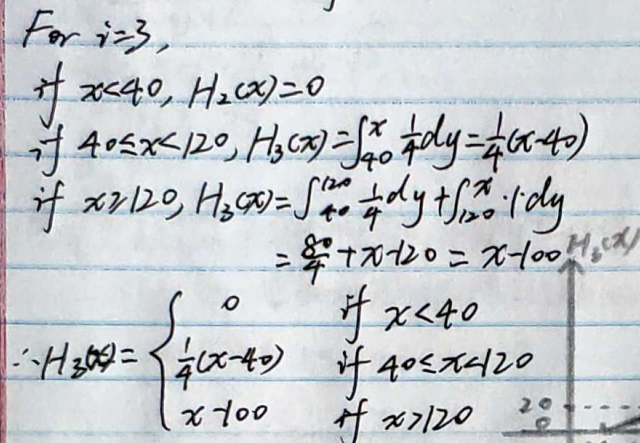 For i=3,
if x<40, H₂(x)=0
if 40≤x<120, H₃(x)=∫₄₀ˣ 1/4 dy=1/4(x-40)
if x≥120, H₃(x)=∫₄₀¹²⁰ 1/4 dy+∫₁₂₀ˣ ·1·dy
= 80/4 +x-120 = x-100
H₃(x)
∴H₃(x)= { 0 if x<40
1/4(x-40) if 40≤x<120
x-100 if x>120
20
0